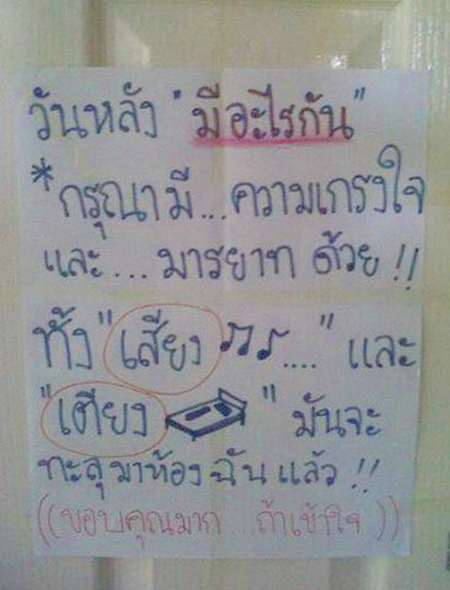 วันหลัง "มีอะไรกัน"
*กรุณามี...ความเกรงใจ
และ....มารยาท ด้วย!!
ทั้ง "เสียง ♫♪...." และ
"เตียง " มันจะ
ทะลุมาห้องฉันแล้ว!!
((ขอบคุณมาก...ถ้าเข้าใจ))